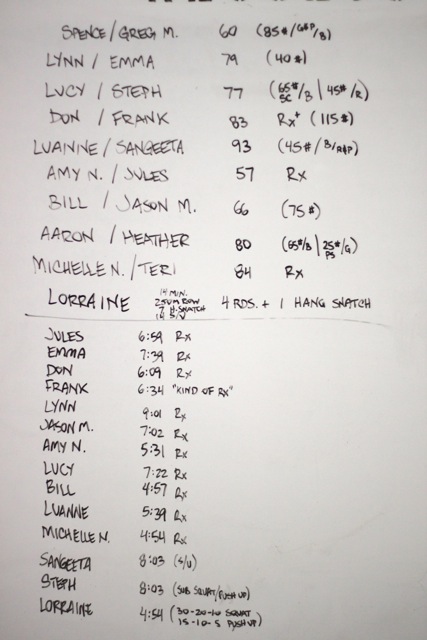 SPENCE / GREG M. 60 (85# / G&P / B)
LYNN / EMMA 79 (40#)
LUCY / STEPH 77 (65# SC / B | 45# / R)
DON / FRANK 83 Rx+ (115#)
LUANNE / SANGEETA 93 (45# / B/R&P)
AMY N. / JULES 57 Rx
BILL / JASON M. 66 (75#)
AARON / HEATHER 80 (65#/B | 25# PS /G)
MICHELLE N. / TERI 84 Rx
LORRAINE 14 MIN. 250M ROW 7 H. SNATCH 14 S/U 4 RDS. + 1 HANG SNATCH
JULES 6:59 Rx
EMMA 7:39 Rx
DON 6:09 Rx
FRANK 6:34 "KIND OF Rx"
LYNN 9:01 Rx
JASON M. 7:02 Rx
AMY N. 5:31 Rx
LUCY 7:22 Rx
BILL 4:57 Rx
LUANNE 5:39 Rx
MICHELLE N. 4:54 Rx
SANGEETA 8:03 (S/U)
STEPH 8:03 (SUB SQUAT/PUSH UP)
LORRAINE 4:54 (30-20-10 SQUAT
15-10-5 PUSH UP)